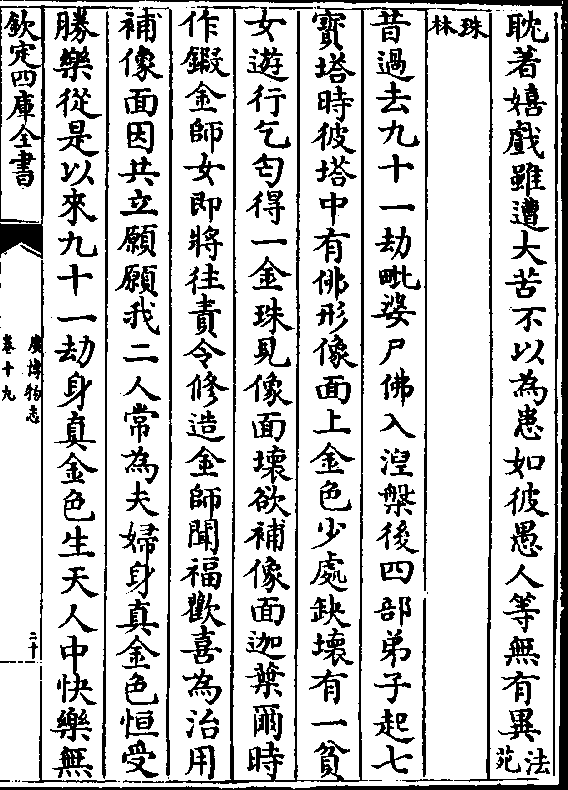 耽著嬉戲雖遭大苦不以為患如彼愚人等無有異法苑
珠林
昔過去九十一劫毗婆尸佛入涅槃後四部弟子起七
寶塔時彼塔中有佛形像面上金色少處缺壞有一貧
女遊行乞匄得一金珠見像面壞欲補像面迦葉爾時
作鍛金師女即將往責令修造金師聞福歡喜為治用
補像面因共立願願我二人常為夫婦身真金色恒受
勝樂從是以來九十一劫身真金色生天人中快樂無
欽定四庫全書
廣博物志
卷十九
二十